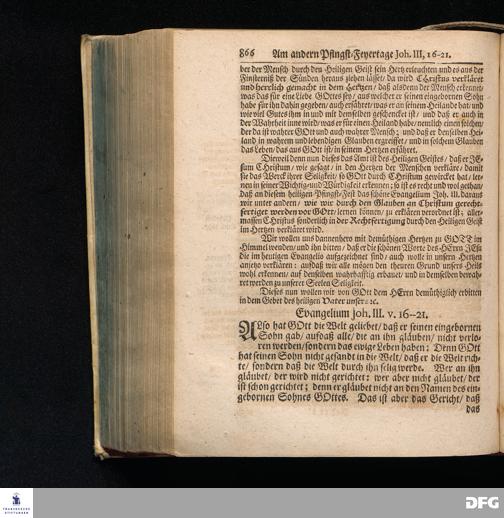 866 Am andern Pfingst-Feyertage Joh. III, 16-21.
ber der Mensch durch den Heiligen Geist sein Hertz erleuchten und es aus der
Finsterniß der Sünden heraus ziehen lässet/ da wird Christus verkläret
und herrlich gemacht in dem Hertzen/ daß alsdenn der Mensch erkennet/
was das für eine Liebe GOttes sey/ aus welcher er seinen eingebornen Sohn
habe für ihn dahin gegeben/ auch erfähret/ was er an seinem Heilande hat/ und
wie viel Gutes ihm in und mit demselben geschencket ist/ und daß er auch in
der Wahrheit inne wird/ was er für einen Heiland habe/ nemlich einen solchen/
der da ist wahrer GOtt und auch wahrer Mensch; und daß er denselben Hei-
land in wahrem und lebendigen Glauben ergreiffet/ und in solchem Glauben
das Leben/ das aus GOtt ist/ in seinem Hertzen erfähret.
Dieweil denn nun dieses das Amt ist des Heiligen Geistes/ daß er JE-
sum Christum/ wie gesagt/ in den Hertzen der Menschen verkläre/ damit
sie das Werck ihrer Seligkeit/ so GOtt durch Christum gewircket hat/ ler-
nen in seiner Wichtig- und Würdigkeit erkennen; so ist es recht und wol gethan/
daß an diesem heiligen Pfingst-Fest das schöne Evangelium Joh. III. daraus
wir unter andern/ wie wir durch den Glauben an Christum gerecht-
fertiget werden vor GOtt/ lernen können/ zu erklären verordnet ist; aller-
massen Christus sonderlich in der Rechtfertigung durch den Heiligen Geist
im Hertzen verkläret wird.
Wir wollen uns dannenhero mit demüthigen Hertzen zu GOTT im
Himmel wenden/ und ihn bitten/ daß er die schönen Worte des HErrn JEsu
die im heutigen Evangelio aufgezeichnet sind/ auch wolle in unsern Hertzen
anjetzo verklären: aufdaß wir alle mögen den theuren Grund unsers Heils
wohl erkennen/ auf denselben wahrhafftig erbauet/ und in demselben bewah-
ret werden zu unserer Seelen Seligkeit.
Dieses nun wollen wir von GOtt dem HErrn demüthiglich erbitten
in dem Gebet des heiligen Vater unser ꝛc.
Evangelium Joh. III. v. 16-21.
ALso hat GOtt die Welt geliebet/ daß er seinen eingebornen
Sohn gab/ aufdaß alle/ die an ihn gläuben/ nicht verlo-
ren werden/ sondern das ewige Leben haben; Denn GOtt
hat seinen Sohn nicht gesandt in die Welt/ daß er die Welt rich-
te/ sondern daß die Welt durch ihn selig werde. Wer an ihn
gläubet/ der wird nicht gerichtet; wer aber nicht gläubet/ der
ist schon gerichtet; denn er gläubet nicht an den Namen des ein-
gebornen Sohnes GOttes. Das ist aber das Gericht/ daß
das
FRANCKESCHE
STIFTUNGEN
DFG